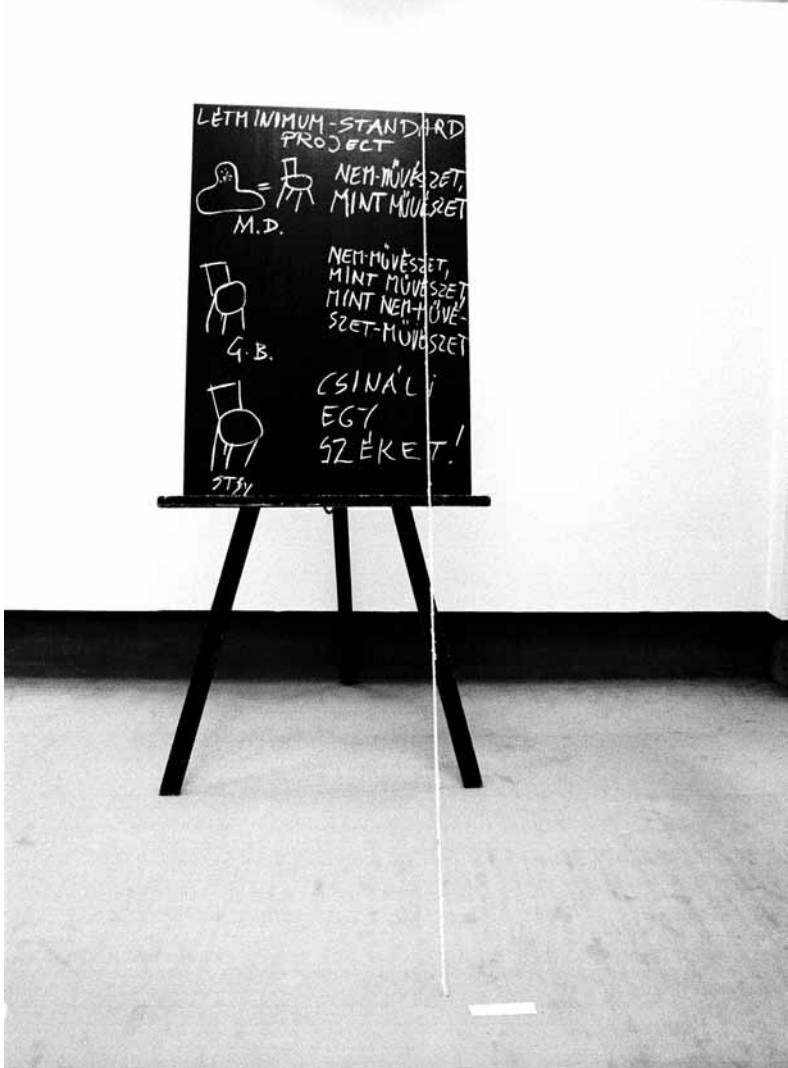 LÉTMINIMUM-STANDARD
PROJECT
=
NEM-MŰVÉSZET,
MINT MŰVÉSZET
M.D.
NEM-MŰVÉSZET,
MINT MŰVÉSZET,
MINT NEM-MŰVÉ-
SZET-MŰVÉSZET
G.B.
CSINÁLJ
EGY
SZÉKET!
STSY